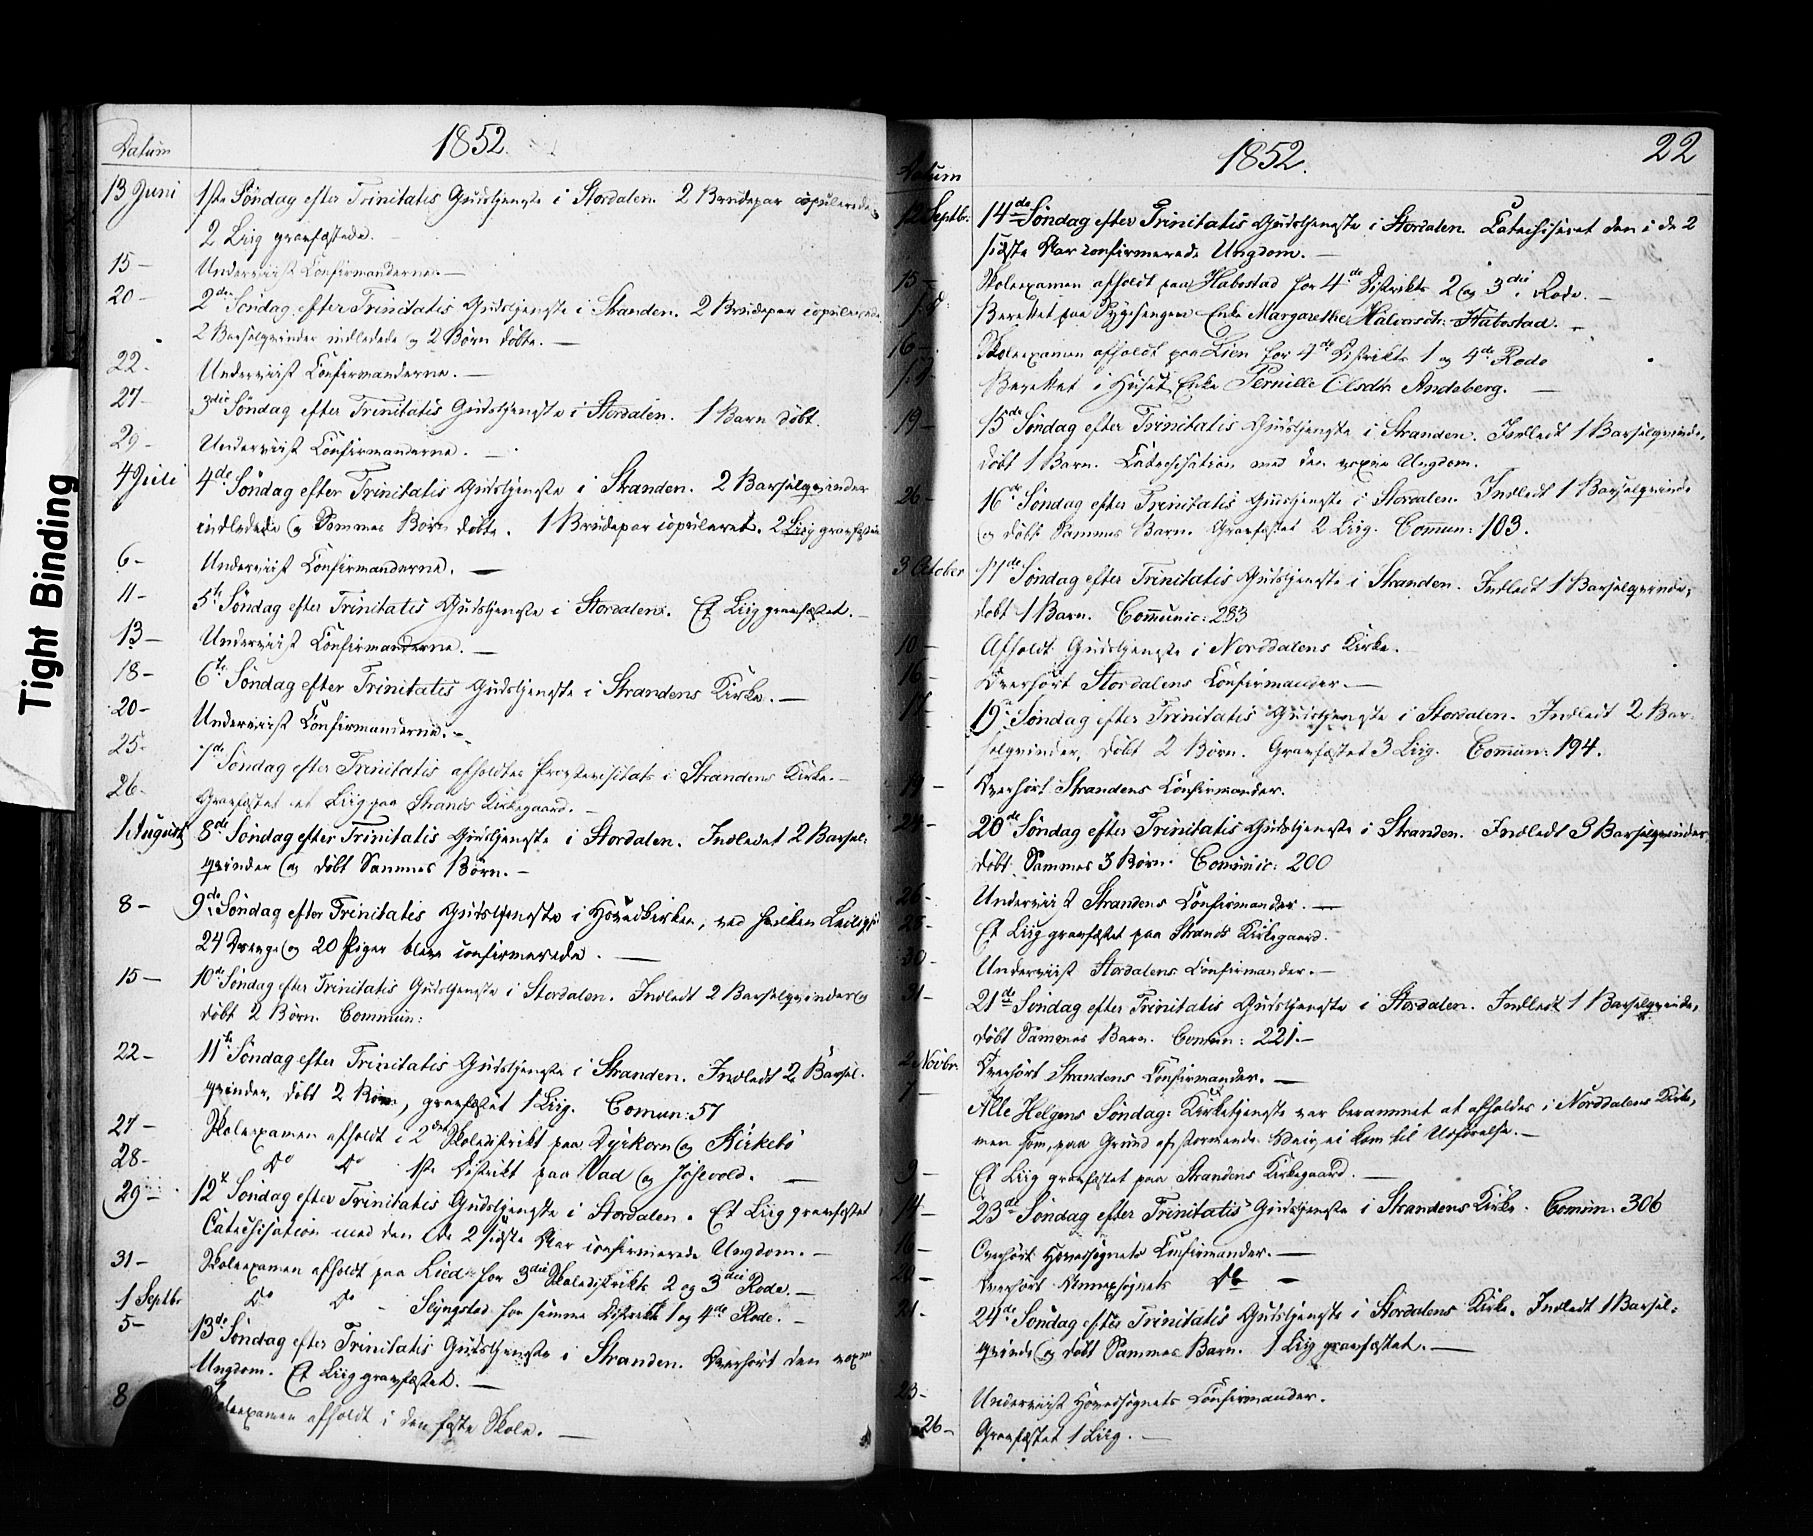 Tight Binding
Datum
1852.
13 Juni 1ste Søndag efter Trinitatis Gudstjeneste i Stordalen. 2 Brudepar copulerede,
2 Liig gravfæstede.
15 – Underviist Confirmanderne. –
20 – 2den Søndag efter Trinitatis Gudstjeneste i Stranden. 2 Brudepar copulerede
2 Barselqvinder indledede og 2 Børn døbte. –
22. Underviist Confirmanderne. –
27 – 3die Søndag efter Trinitatis Gudstjeneste i Stordalen. 1 Barn døbt.
29 – Underviist Confirmanderne. –
4 Juli 4de Søndag efter Trinitatis Gudstjeneste i Stranden. 2 Barselqvinder
indledede og Sammes Børn døbte. 1 Brudepar copuleret. 2 Liig gravfæstede
6 – Underviist Confirmanderne. –
11 – 5te Søndag efter Trinitatis Gudstjeneste i Stordalen. Et Liig gravfæstet. –
13 – Underviist Confirmanderne. –
18 – 6te Søndag efter Trinitatis Gudstjeneste i Strandens Kirke. –
20 – Underviist Confirmanderne. –
25 – 7de Søndag efter Trinitatis afholdtes Provstevisitats i Strandens Kirke. –
26 – Gravfæstet et Liig paa Strands Kirkegaard. –
1 August 8de Søndag efter Trinitatis Gudstjeneste i Stordalen. Indledet 2 Barsel-
qvinder og døbt Sammes Børn. –
8 – 9de Søndag efter Trinitatis Gudstjeneste i Hovedkirken, ved hvilken Leilighed
24 Drenge og 20 Piger bleve confirmerede. –
15 – 10de Søndag efter Trinitatis Gudstjeneste i Stordalen. Indledt 2 Barselqvinder og
døbt 2 Børn. Commun:
22 – 11te Søndag efter Trinitatis Gudstjeneste i Stranden. Indledt 2 Barsel-
qvinder, døbt 2 Børn, gravfæstet 1 Liig. Comun: 57
27 – Skoleexamen afholdt i 2det Skoledistrikt paa Dyrkorn og Kirkebø
28 – Do Do 1ste Distrikt paa Vad og Jøsevold. –
29 – 12te Søndag efter Trinitatis Gudstjeneste i Stordalen. Et Liig gravfæstet
Catechisation med den i de 2 sidste Aar confirmerede Ungdom. –
31 – Skoleexamen afholdt paa Lied for 3die Skoledistrikts 2 og 3die Rode. –
1 Septbr Do Do – Slyngstad for samme Distrikts 1 og 4de Rode. –
5 – 13de Søndag efter Trinitatis Gudstjeneste i Stranden. Overhørt den voxne
Ungdom. Et Liig gravfæstet. –
8 Skoleexamen afholdt i den faste Skole. –
Datum
1852.
22
12 Septbr: 14de Søndag efter Trinitatis Gudstjeneste i Stordalen. Catechiseret den i de 2
sidste Aar confirmerede Ungdom. –
15 – Skoleexamen afholdt paa Habostad for 4de Distrikts 2 og 3die Rode. –
s. d: Berettet paa Sygesengen Enke Margarethe Halvorsdtr: Habostad. –
16 – Skoleexamen afholdt paa Lien for 4de Distrikts 1 og 4de Rode
s. d – Berettet i Huset Enke Pernille Olsdtr Andsberg. –
19 – 15de Søndag efter Trinitatis Gudstjeneste i Stranden. Indledt 1 Barselqvinde,
døbt 1 Barn. Catechisation med den voxne Ungdom.
26 – 16de Søndag efter Trinitatis Gudstjeneste i Stordalen. Indledt 1 Barselqvinde
og døbt Sammes Barn. Gravfæstet 2 Liig. Commun: 103.
3 October 17de Søndag efter Trinitatis Gudstjeneste i Stranden. Indledt 1 Barselqvinde,
døbt 1 Barn. Communic: 283
10 – Afholdt Gudstjeneste i Norddalens Kirke. –
16 – Overhørt Stordalens Confirmander. –
17 19de Søndag efter Trinitatis Gudstjeneste i Stordalen. Indledt 2 Bar-
selqvinder, døbt 2 Børn. Gravfæstet 3 Liig. Commun: 194.
19 – Overhørt Strandens Confirmander.
24 – 20de Søndag efter Trinitatis Gudstjeneste i Stranden. Indledt 3 Barselqvinder
døbt Sammes 3 Børn. Communic: 200
26 – Underviist Strandens Confirmander. –
28 – Et Liig gravfæstet paa Strands Kirkegaard.
30 – Underviist Stordalens Confirmander. –
31 – 21de Søndag efter Trinitatis Gudstjeneste i Stordalen. Indledt 1 Barselqvinde,
døbt Sammes Barn. Commun: 221. –
2 Novbr. Overhørt Strandens Confirmander. –
7 – Alle Helgens Søndag: Kirketjeneste var berammet at afholdes i Norddalens Kirke,
men som, paa Grund af stormende Veir, ei kom til Udførelse. –
9 – Et Liig gravfæstet paa Strandens Kirkegaard. –
14 – 23de Søndag efter Trinitatis Gudstjeneste i Strandens Kirke. Commun: 306
16 – Overhørt Hovedsognets Confirmander. –
20 – Overhørt Annexsognets Do –
21 – 24de Søndag efter Trinitatis Gudstjeneste i Stordalens Kirke. Indledt 1 Barsel-
qvinde og døbt Sammes Barn. 1 Liig gravfæstet. –
23 – Underviist Hovedsognets Confirmander.
26 – Gravfæstet 1 Liig. –